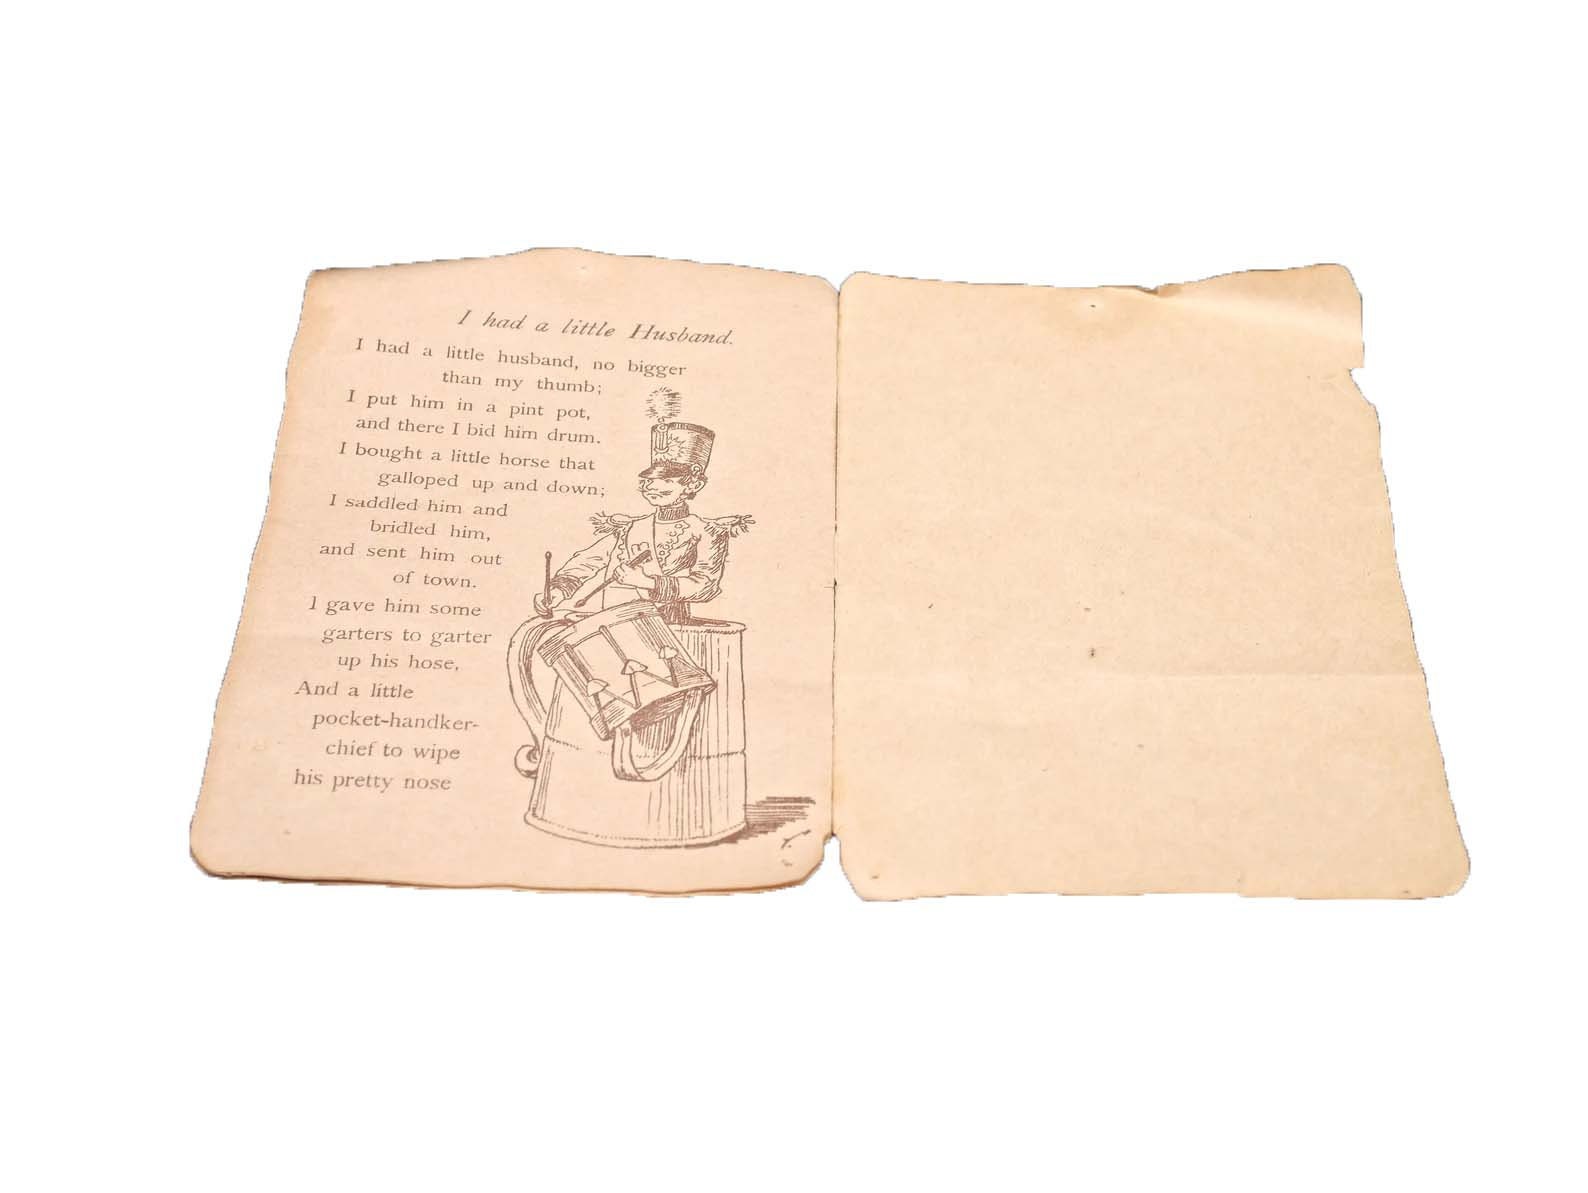 I had a little Husband.
I had a little husband, no bigger
than my thumb;
I put him in a pint pot,
and there I bid him drum.
I bought a little horse that
galloped up and down;
I saddled him and
bridled him,
and sent him out
of town.
I gave him some
garters to garter
up his hose,
And a little
pocket-handker-
chief to wipe
his pretty nose